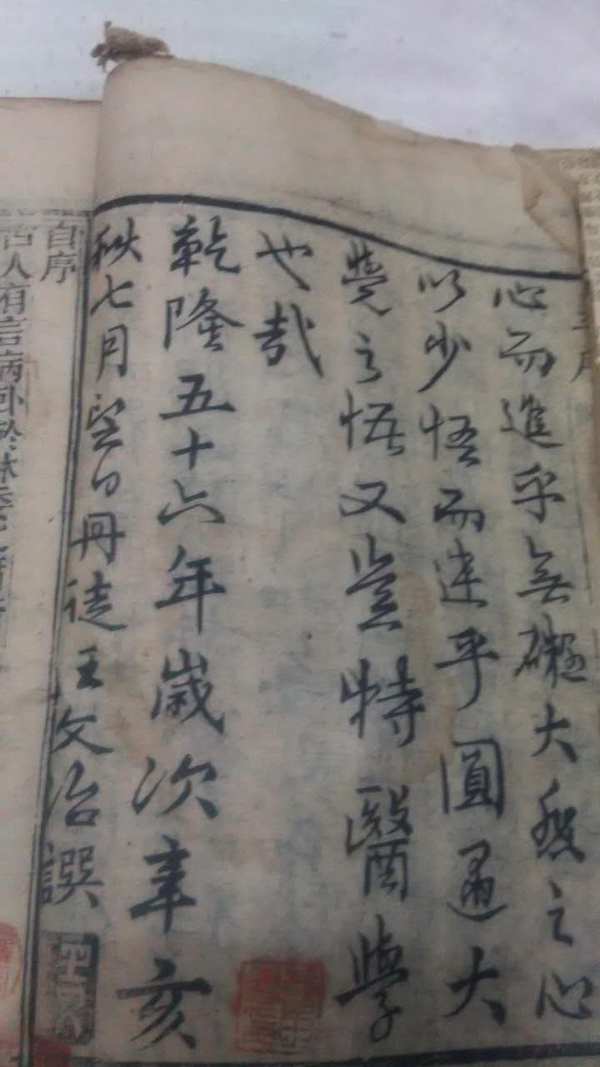 心而進乎無礙大慈之心
以少悟而達乎圓通大
覺之悟又豈特醫學
也哉
乾隆五十六年歲次辛亥
秋七月望日丹徒王文治譔
自序
古人有言病卧於牀委